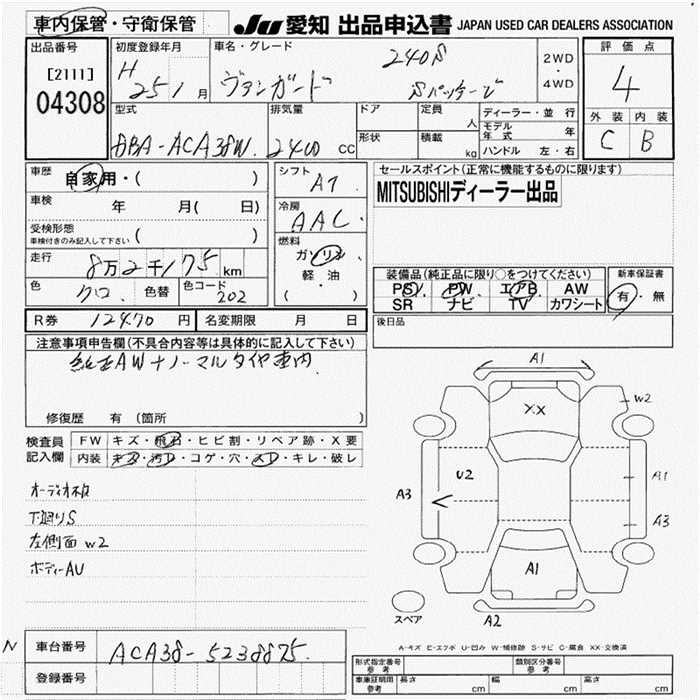 車内保管・守衛保管
JU 愛知 出品申込書 JAPAN USED CAR DEALERS ASSOCIATION
出品番号
[2111]
04308
初度登録年月
H 25 1 月
車名・グレード
240S
ヴァンガード Sパッケージ
2WD
・
4WD
評価点
4
外装 内装
C B
型式
DBA-ACA38W
排気量
2400 cc
ドア
形状
定員 人
積載 kg
ディーラー・並行
モデル年式 年
ハンドル 左・右
車歴 自家用・( )
車検 年 月(日)
受検形態
車検付きのみ記入して下さい ( )
走行 8万2千175 km
色 クロ 色替 色コード 202
シフト
AT
冷房
AAC
燃料
ガソリン
軽・油
( )
セールスポイント(正常に機能するものに限ります)
MITSUBISHIディーラー出品
装備品(純正品に限り○をつけてください)
PS PW エアB AW
SR ナビ TV カワシート
新車保証書
有・無
R券 12470 円 名変期限 月 日
後日品
注意事項申告欄(不具合内容等は具体的に記入して下さい)
純正AWナノーマルタイヤ車内
修復歴 有(箇所 )
検査員記入欄
FW キズ・飛石・ヒビ割・リペア跡・X要
内装 キズ・汚レ・コゲ・穴・スレ・キレ・破レ
オーディオ不良
下廻りS
左側面 W2
ボディーAU
A1
W2
XX
U2
A1
A3
A3
A1
A2
スペア
A-キズ E-エクボ U-凹み W-補修跡 S-サビ C-腐食 XX-交換済
N
車台番号 ACA38-5238875
登録番号
形式指定番号
参考
類別区分番号
参考
車庫証明用
参考
長さ cm 幅 cm 高さ cm